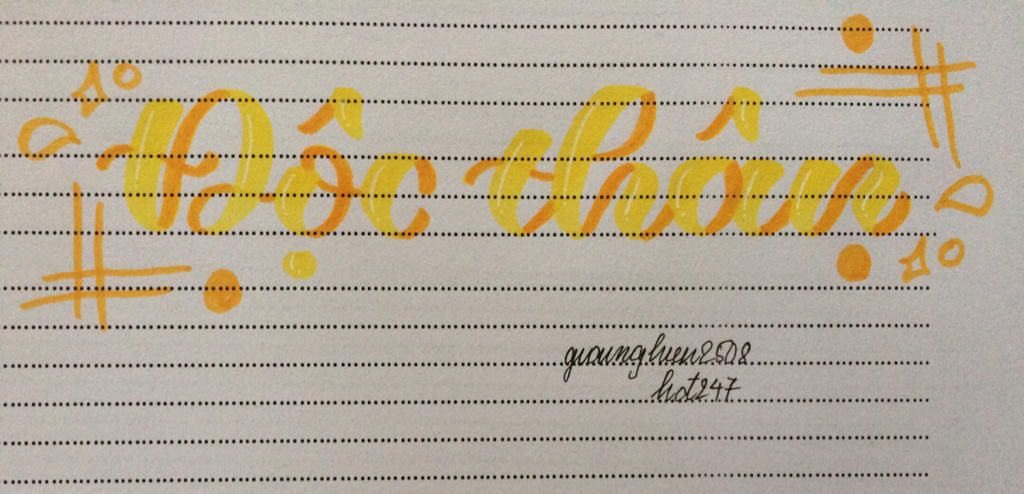 Độc thân
giaunghien2508
hot247